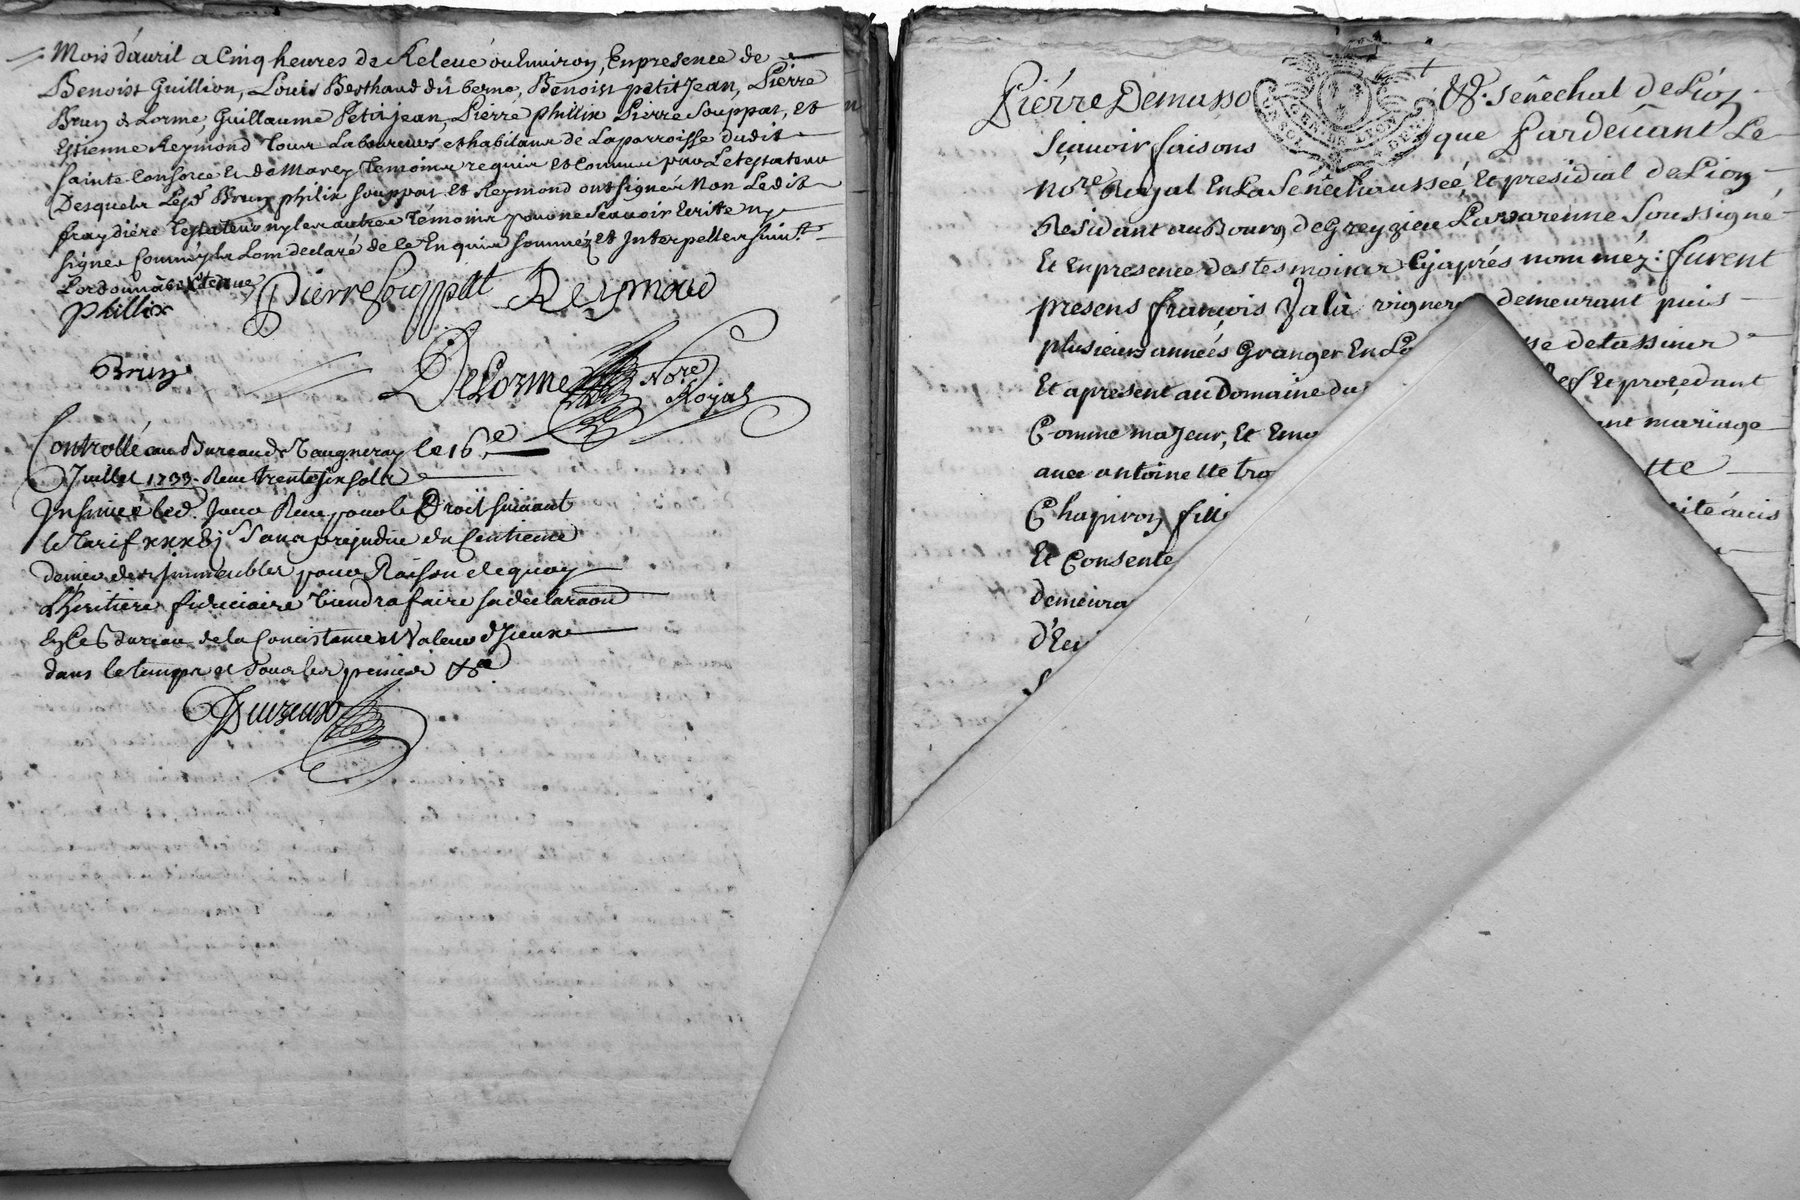 Mois d'auril a Cinq heures de Releué ou Enuiron, En presence de
Benoist Guillion, Louis Berthaud dit berna, Benoist petit Jean, Pierre
Brun de Lorme, Guillaume Petit jean, Pierre phillix Pierre Souppat, et
Estienne Reymond Tous Laboureurs et habitans de La parroisse dudit
sainte Consorce et de Marcy Temoins requis et Connus par Le testateur
Desquels Les Brun philix souppat et Reymond ont signéz Non Ledit
fraydiere testateur ny les autres Témoins pour ne Scauoir Ecrire ny
signer Comme ils Lont declaré de ce Enquis Sommez Et Interpellez suiu.t
Lordonnance
Phillix
Pierre Souppat Reymond
Brun
DeLorme Nore Royal
Controllé au Bureau de Vaugneray le 16.e
Juillet 1733. Receu trente six sols
Insinué led. Jour Receu pour le Droit suiuant
le Tarif xxxvj s sans prejudice du Centieme
denier des Immeubles pour Raison de quoy
L'heritiere fiduciaire viendra faire sa declaraon
En ce Bureau de la Concistance et Valeur d'Iceux
dans le temps et sous les peines &a
Pierre Demasso &. Senêchal de Lion
Sçauoir faisons que Pardeuant Le
Nore. Royal En La Senêchaussée, Et presidial de Lion
Residant au Bourg de Greyzieu Lauarenne Soussigné
Et En presence des tesmoins Cy aprés nomméz: furent
presens françois demeurant puis
plusieurs années Granger En La de tassins
Et apresent au Domaine du Et procedant
Comme majeur, Et mariage
auec antoinette
Chapiron fille
Et Consente
demeura
d'Ec